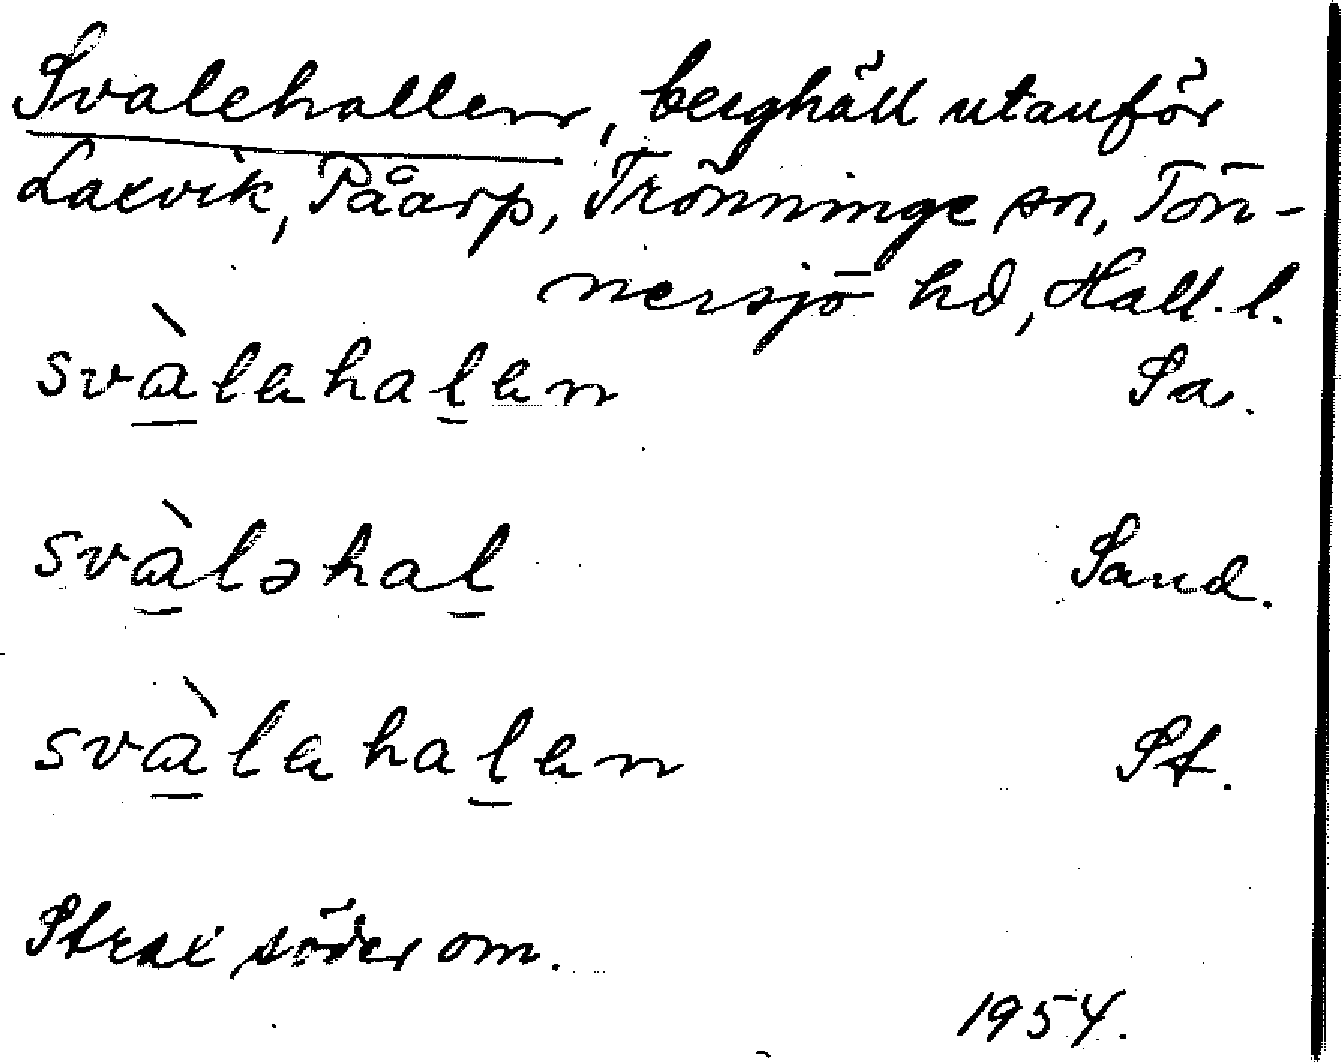 Svalehallen, berghäll utanför
Laxvik, Påarp, Trönninge sn, Tön-
nersjö hd, Hall. l.
svàlahalan Sa.
svàləhal Sand.
svàlahalan St.
Strax söder om.
1954.